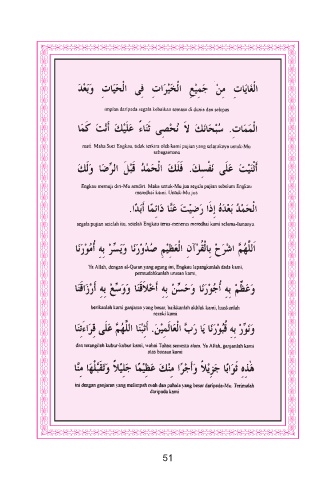 الْغَايَاتِ مِنْ جَمِيْعِ الْخَيْرَاتِ فِى الْحَيَاتِ وَبَعْدَ
impian daripada segala kebaikan semasa di dunia dan selepas
الْمَمَاتِ. سُبْحَانَكَ لَا نُحْصِى ثَنَاءً عَلَيْكَ أَنْتَ كَمَا
mati. Maha Suci Engkau, tidak terkira oleh kami pujian yang selayaknya untuk-Mu sebagaimana
أَثْنَيْتَ عَلَى نَفْسِكَ. فَلَكَ الْحَمْدُ قَبْلَ الرِّضَا وَلَكَ
Engkau memuji diri-Mu sendiri. Maka untuk-Mu jua segala pujian sebelum Engkau meredhai kami. Untuk-Mu jua
الْحَمْدُ بَعْدَهُ إِذَا رَضِيْتَ عَنَّا دَائِمًا أَبَدًا.
segala pujian setelah itu, setelah Engkau terus-menerus meredhai kami selama-lamanya
اَللّٰهُمَّ اشْرَحْ بِالْقُرْآنِ الْعَظِيْمِ صُدُوْرَنَا وَيَسِّرْ بِهِ أُمُوْرَنَا
Ya Allah, dengan al-Quran yang agung ini, Engkau lapangkanlah dada kami, permudahkanlah urusan kami,
وَعَظِّمْ بِهِ أُجُوْرَنَا وَحَسِّنْ بِهِ أَخْلَاقَنَا وَوَسِّعْ بِهِ أَرْزَاقَنَا
berikanlah kami ganjaran yang besar, baikkanlah akhlak kami, luaskanlah rezeki kami
وَنَوِّرْ بِهِ قُبُوْرَنَا يَا رَبَّ الْعَالَمِيْنَ. أَثِبْنَا اللّٰهُمَّ عَلَى قِرَاءَتِنَا
dan terangilah kubur-kubur kami, wahai Tuhan semesta alam. Ya Allah, ganjarilah kami atas bacaan kami
هٰذِهِ ثَوَابًا جَزِيْلًا وَأَجْرًا مِنْكَ عَظِيْمًا جَلِيْلًا وَتَقَبَّلْهَا مِنَّا
ini dengan ganjaran yang melimpah ruah dan pahala yang besar daripada-Mu. Terimalah daripada kami
51